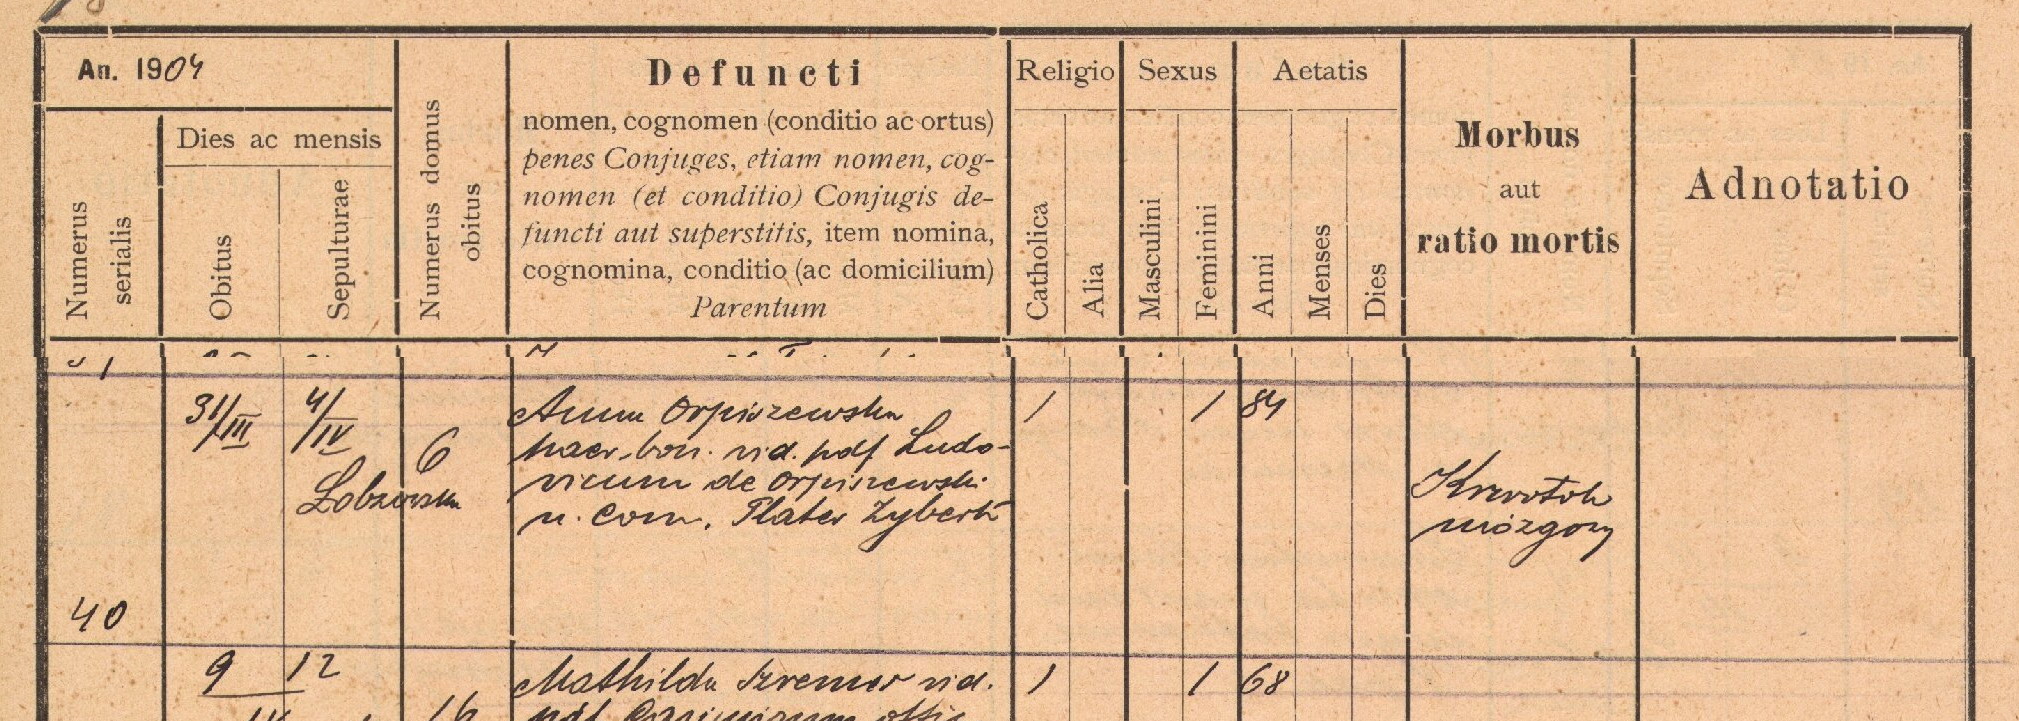 An. 1904
Dies ac mensis
Numerus serialis
Obitus
Sepulturae
Numerus domus obitus
Defuncti
nomen, cognomen (conditio ac ortus)
penes Conjuges, etiam nomen, cog-
nomen (et conditio) Conjugis de-
functi aut superstitis, item nomina,
cognomina, conditio (ac domicilium)
Parentum
Religio
Catholica
Alia
Sexus
Masculini
Feminini
Aetatis
Anni
Menses
Dies
Morbus
aut
ratio mortis
Adnotatio
40
31/III
4/IV
6
Łobzowska
Anna Orpiszewska
haer. bon. vid. pdf Ludo-
vicum de Orpiszewski
n. Com. Plater Zyberk
1
1
84
Krwotok
mózgowy
9
12
16
Mathilda Kremer vid.
1
1
68